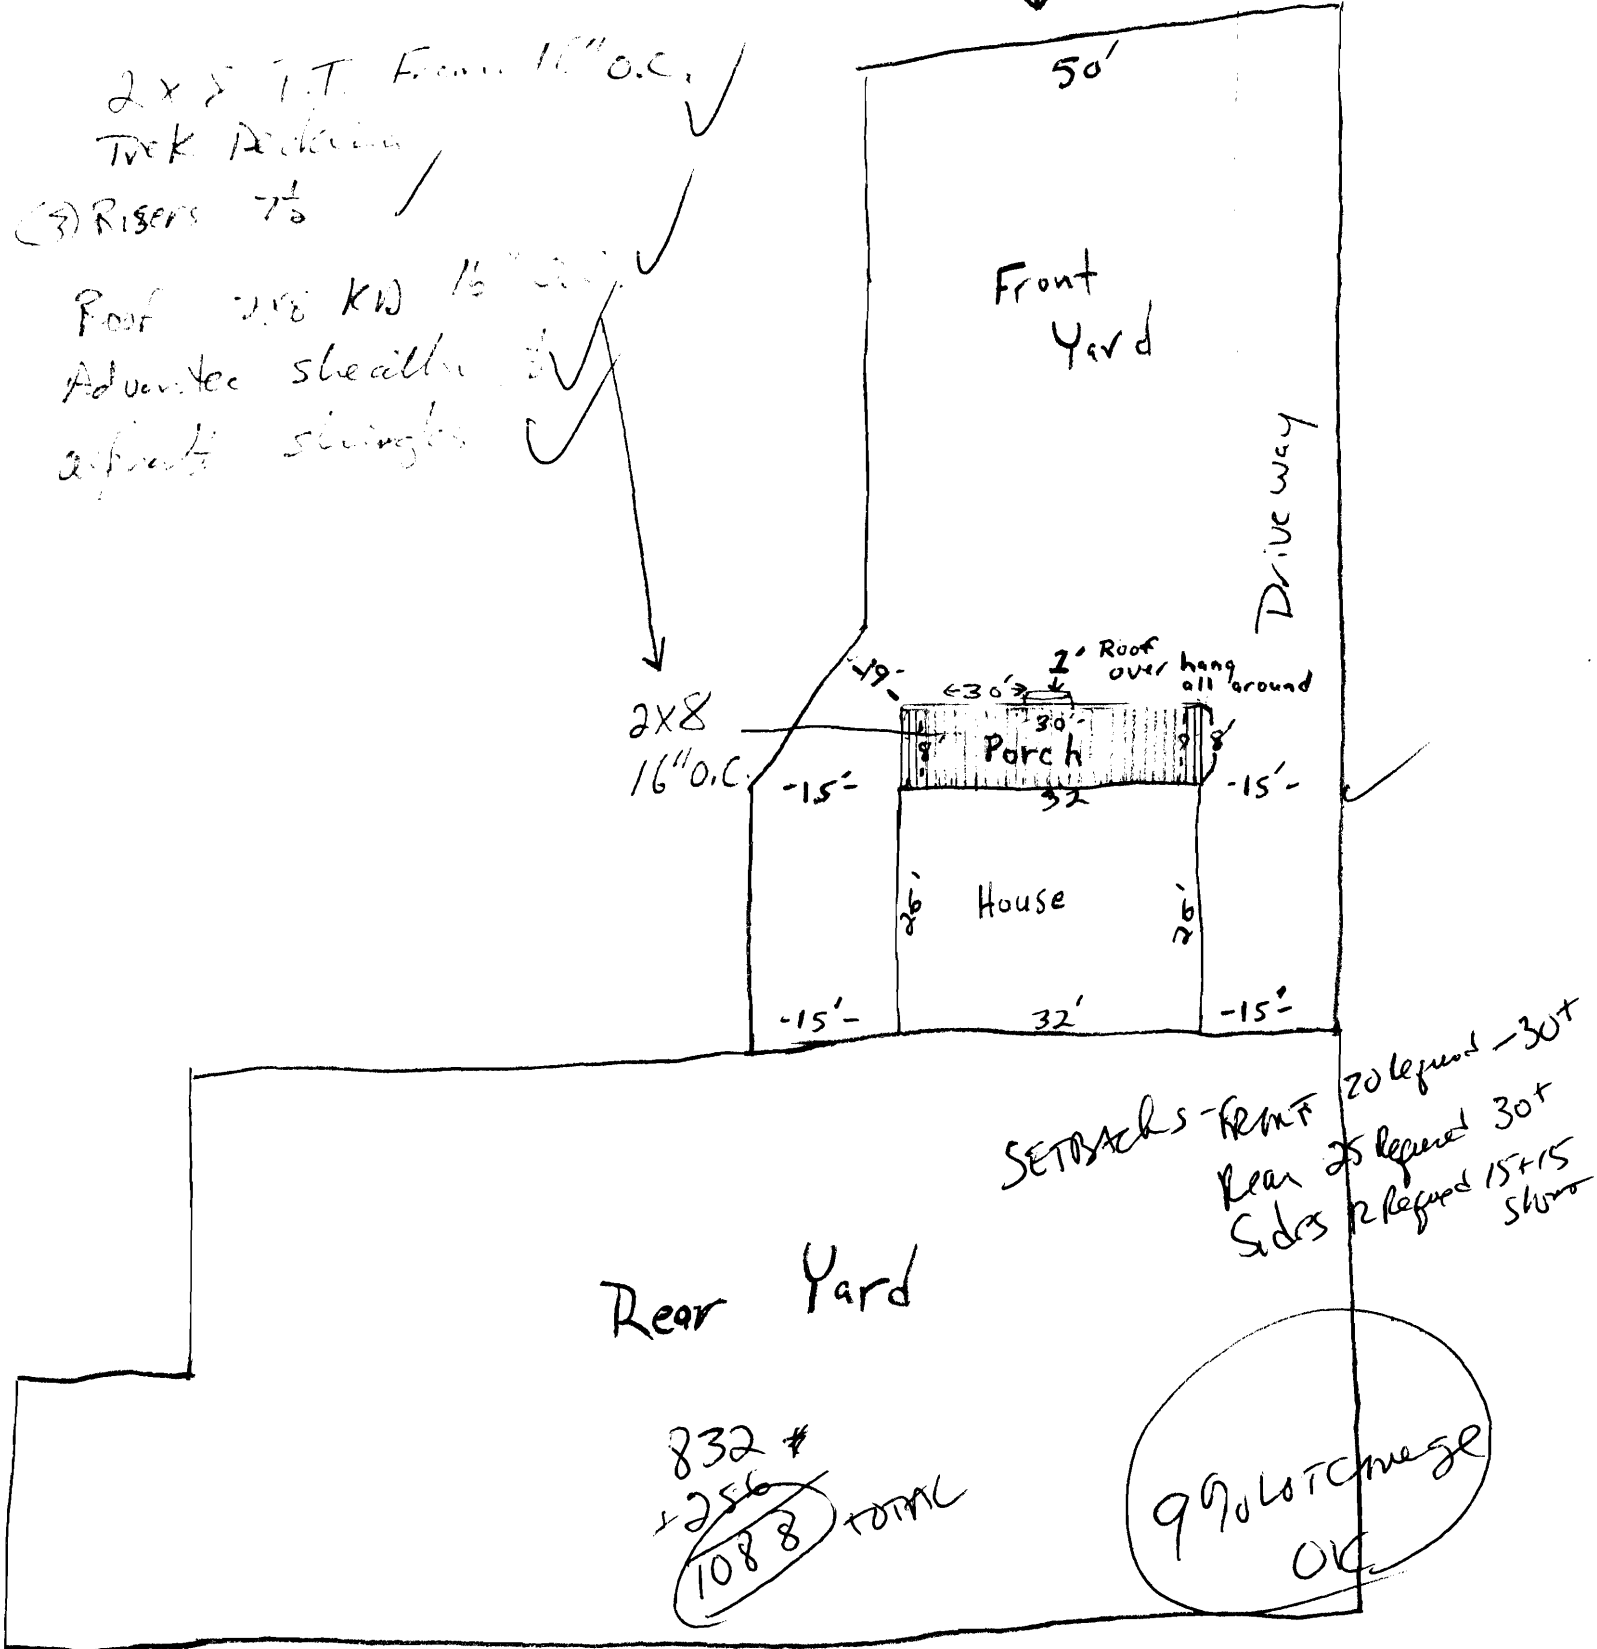 2 x 8 P.T. Frame 16" O.C.
Trek Decking
(3) Risers 7½
Roof 2x8 KD 16" O.C.
Advantec sheath ½
shingles
50'
Front
Yard
Driveway
-19'-
1' Roof
over hang
all around
<30'>
30'-
8'
Porch
8
8'
2x8
16" O.C.
-15'-
32
-15'-
26'
House
26'
-15'-
32'
-15'-
SETBACKS - FRONT 20 Required - 30+
Rear 25 Required 30+
Sides 12 Required 15+15
Shown
Rear Yard
832
+256
1088 TOTAL
9% LOT Coverage
OK